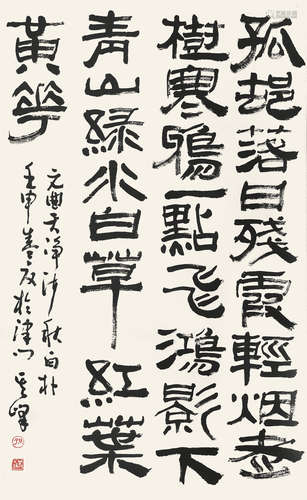 孤邨落日殘霞輕烟老
樹寒鴉一點飛鴻影下
青山綠水白草紅葉
黃花
元曲天淨沙秋白朴
壬申春於津门其峰